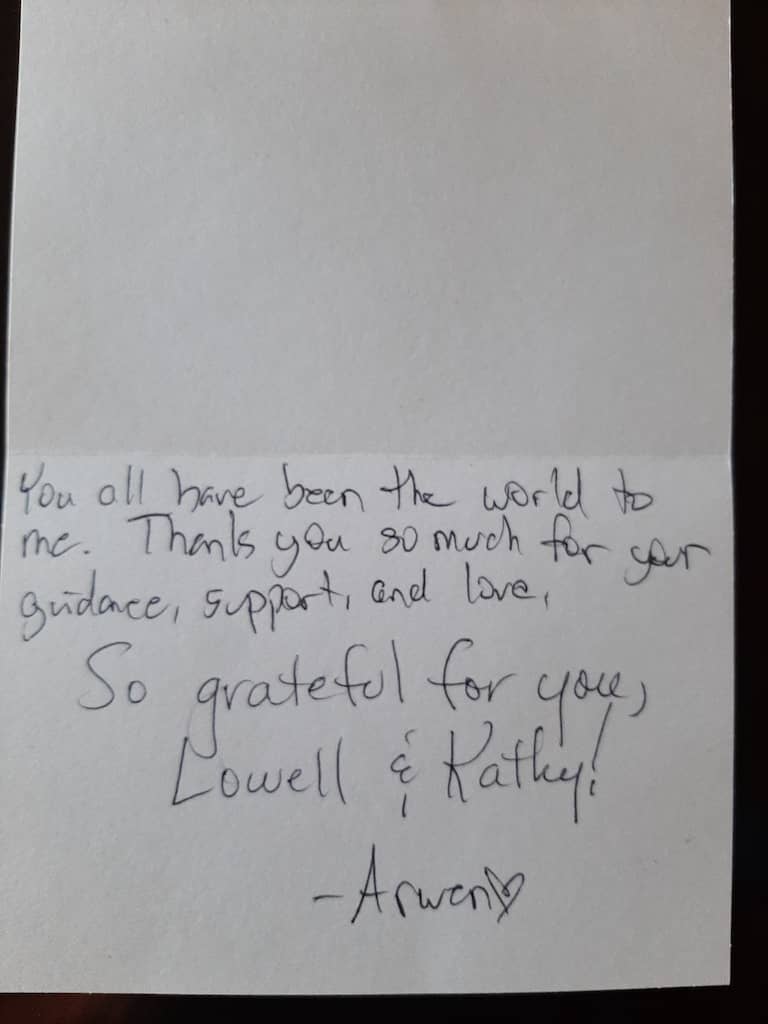 You all have been the world to
me. Thanks you so much for your
guidance, support, and love,
So grateful for you,
Lowell & Kathy!
-Arwen♡